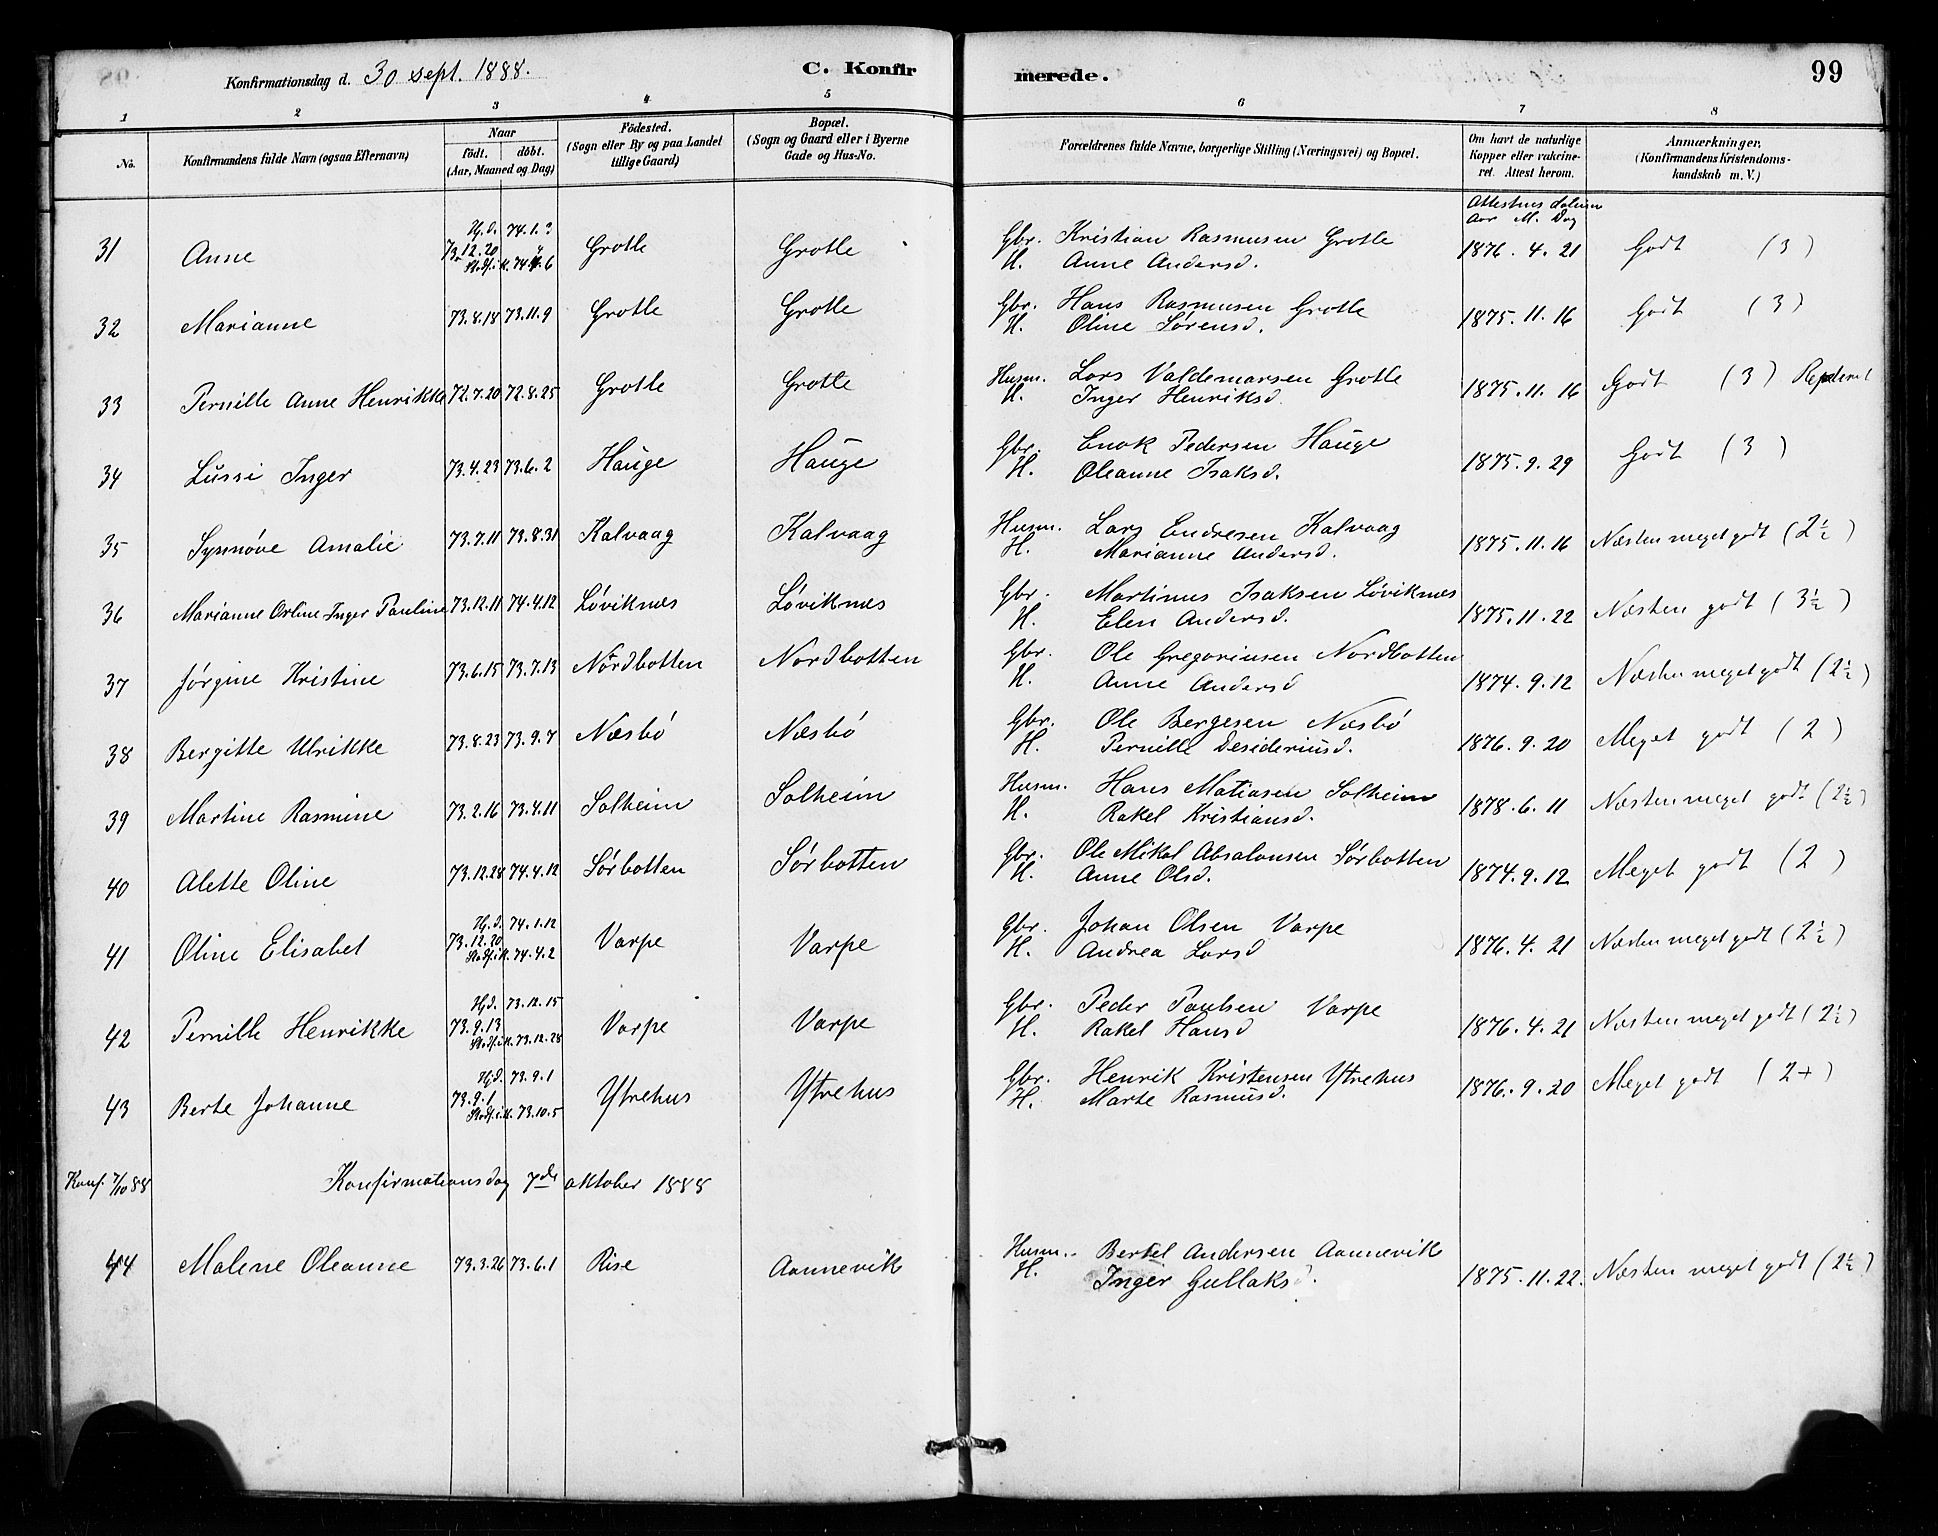 Konfirmationsdag d. 30 sept. 1888. C. Konfirmerede. 99
1 2 3 4 5 6 7 8
No. Konfirmandens fulde Navn (ogsaa Efternavn) Naar födt. döbt. (Aar, Maaned og Dag) Födested. (Sogn eller By og paa Landet tillige Gaard) Bopæl. (Sogn og Gaard eller i Byerne Gade og Hus-No. Forældrenes fulde Navne, borgerlige Stilling (Næringsvei) og Bopæl. Om havt de naturlige Kopper eller vakcineret. Attest herom. Anmærkninger, (Konfirmandens Kristendomskundskab m. V.)
Attestens datum
Aar M. Dag
31 Anne Hj.d. 74.1.? 73.12.20 Stadf. i K. 74.4.6 Grotle Grotle Gbr. Kristian Rasmusen Grotle 1876. 4. 21 Godt (3)
H. Anne Andersd.
32 Marianne 73.8.18 73.11.9 Grotle Grotle Gbr. Hans Rasmusen Grotle 1875. 11. 16 Godt (3)
H. Oline Sörensd.
33 Pernille Anne Henrikke 72.7.20 72.8.25 Grotle Grotle Husm. Lars Valdemarsen Grotle 1875. 11. 16 Godt (3)
H. Inger Henriksd.
34 Lussi Inger 73.4.23 73.6.2 Hauge Hauge Gbr. Enok Pedersen Hauge 1875. 9. 29 Godt (3)
H. Oleanne Isaksd.
35 Synnöve Amalie 73.7.11 73.8.31 Kalvaag Kalvaag Husm. Lars Endresen Kalvaag 1875. 11. 16 Næsten meget godt (2½)
H. Marianne Andersd.
36 Marianne Orline Inger Pauline 73.12.11 74.4.12 Löviknes Löviknes Gbr. Martinus Isaksen Löviknes 1875. 11. 22 Næsten godt (3½)
H. Elen Andersd.
37 Jörgine Kristine 73.6.15 73.7.13 Nordbotten Nordbotten Gbr. Ole Gregoriusen Nordbotten 1874. 9. 12 Næsten meget godt (2½)
H. Anne Andersd
38 Bergitte Ulrikke 73.8.23 73.9.7 Næsbö Næsbö Gbr. Ole Bergesen Næsbö 1876. 9. 20 Meget godt (2)
H. Pernille Desideriusd.
39 Martine Rasmine 73.2.16 73.4.11 Solheim Solheim Husm. Hans Matiasen Solheim 1878. 6. 11 Næsten meget godt (2½)
H. Rakel Kristiansd.
40 Alette Oline 73.12.28 74.4.12 Sörbotten Sörbotten Gbr. Ole Mikal Absalonsen Sörbotten 1874. 9. 12 Meget godt (2)
H. Anne Olsd.
41 Oline Elisabet Hj.d. 74.1.12 73.12.20 Stadf. i K. 74.4.2 Varpe Varpe Gbr. Johan Olsen Varpe 1876. 4. 21 Næsten meget godt (2½)
H. Andrea Larsd
42 Pernille Henrikke Hj.d. 73.12.15 73.9.13 Stadf. i K. 73.12.28 Varpe Varpe Gbr. Peder Paulsen Varpe 1876. 4. 21 Næsten meget godt (2½)
H. Rakel Hansd
43 Berte Johanne Hj.d. 73.9.1 73.9.1 Stadf. i K. 73.10.5 Ytrehus Ytrehus Gbr. Henrik Kristensen Ytrehus 1876. 9. 20 Meget godt (2+)
H. Marte Rasmusd.
Konf. 7/10 88 Konfirmationsdag 7de oktober 1888
44 Malene Oleanne 73.3.26 73.6.1 Rise Aannevik Husm. Bertel Andersen Aannevik 1875. 11. 22. Næsten meget godt (2½)
H. Inger Gullaksd.